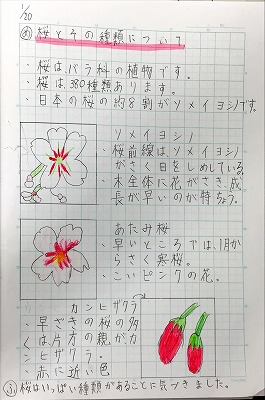 1/20
め 桜とその種類について
・桜は、バラ科の植物です。
・桜は、380種類あります。
・日本の桜の約8割がソメイヨシノです。
ソメイヨシノ
・桜前線は、ソメイヨシノ
がさく日をしめしている。
・木全体に花がさき、成
長が早いのが特ちょう。
あたみ桜
・早いところでは、1月か
らさく寒桜。
・こいピンクの花。
カンヒザクラ
・早ざきの桜の多
くは片方の親がカ
ンヒザクラ。
・赤に近い色
ふ 桜はいっぱい種類があることに気づきました。